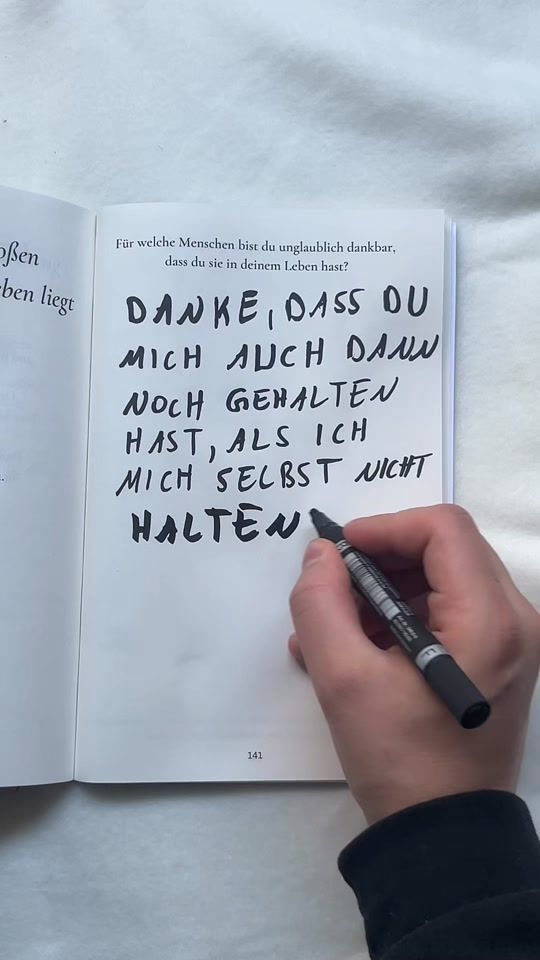 oßen
ben liegt
Für welche Menschen bist du unglaublich dankbar,
dass du sie in deinem Leben hast?
DANKE, DASS DU
MICH AUCH DANN
NOCH GEHALTEN
HAST, ALS ICH
MICH SELBST NICHT
HALTEN
141